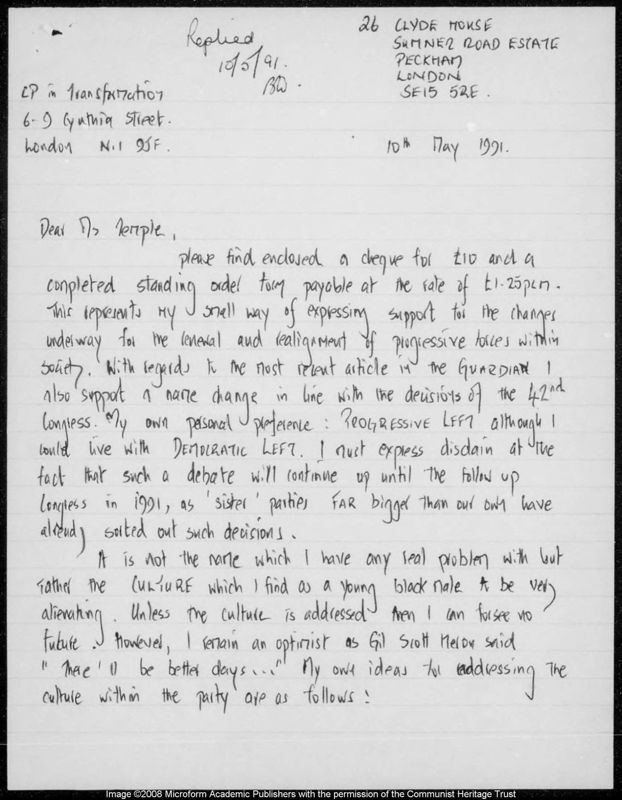 Replied
10/5/91.
BW.
26 CLYDE HOUSE
SUMNER ROAD ESTATE
PECKHAM
LONDON
SE15 5RE.
CP in Transformation
6-9 Cynthia Street.
London N.1 9JF.
10th May 1991.
Dear Ms Temple,
please find enclosed a cheque for £10 and a
completed standing order form payable at the rate of £1.25pcm.
This represents my small way of expressing support for the changes
underway for the renewal and realignment of progressive forces within
society. With regards to the most recent article in the GUARDIAN I
also support a name change in line with the decisions of the 42nd
Congress. My own personal preference: PROGRESSIVE LEFT although I
could live with DEMOCRATIC LEFT. I must express disdain at the
fact that such a debate will continue up until the follow up
Congress in 1991, as 'sister' parties FAR bigger than our own have
already sorted out such decisions.
It is not the name which I have any real problem with but
rather the CULTURE which I find as a young black male to be very
alienating. Unless the culture is addressed then I can forsee no
future. However, I remain an optimist as Gil Scott Heron said
"There'll be better days..." My own ideas for addressing the
culture within the party are as follows:
Image ©2008 Microform Academic Publishers with the permission of the Communist Heritage Trust